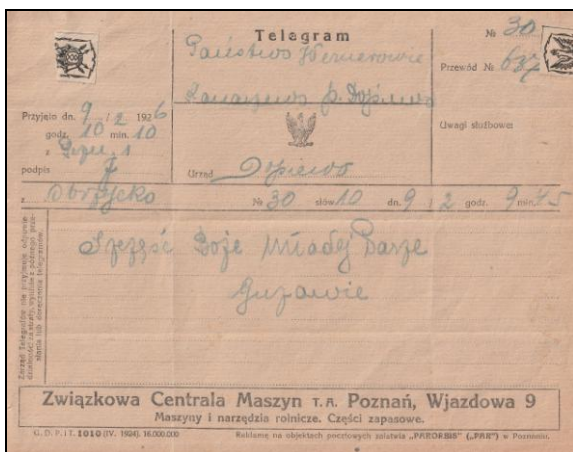 Telegram
№ 30
Państwo Wernerowie
Przewód №
p. Dopiewo
Przyjęto dn. 9 / 2 1926
godz. 10 min. 10
Uwagi służbowe:
z
podpis
Urząd Dopiewo
z Obrzycko № 30 słów 10 dn. 9 / 2 godz. 9 min. 45
Zarząd telegrafów nie przyjmuje odpowiedzialności za straty, wynikłe z późnego przesłania lub doręczenia telegramów.
Szczęść Boże Młodej Parze
Związkowa Centrala Maszyn T. A. Poznań, Wjazdowa 9
Maszyny i narzędzia rolnicze. Części zapasowe.
G. D. P. i T. 1010 (IV. 1924). 16.000.000 Reklamę na objektach pocztowych załatwia „PARORBIS" („PAR") w Poznaniu.